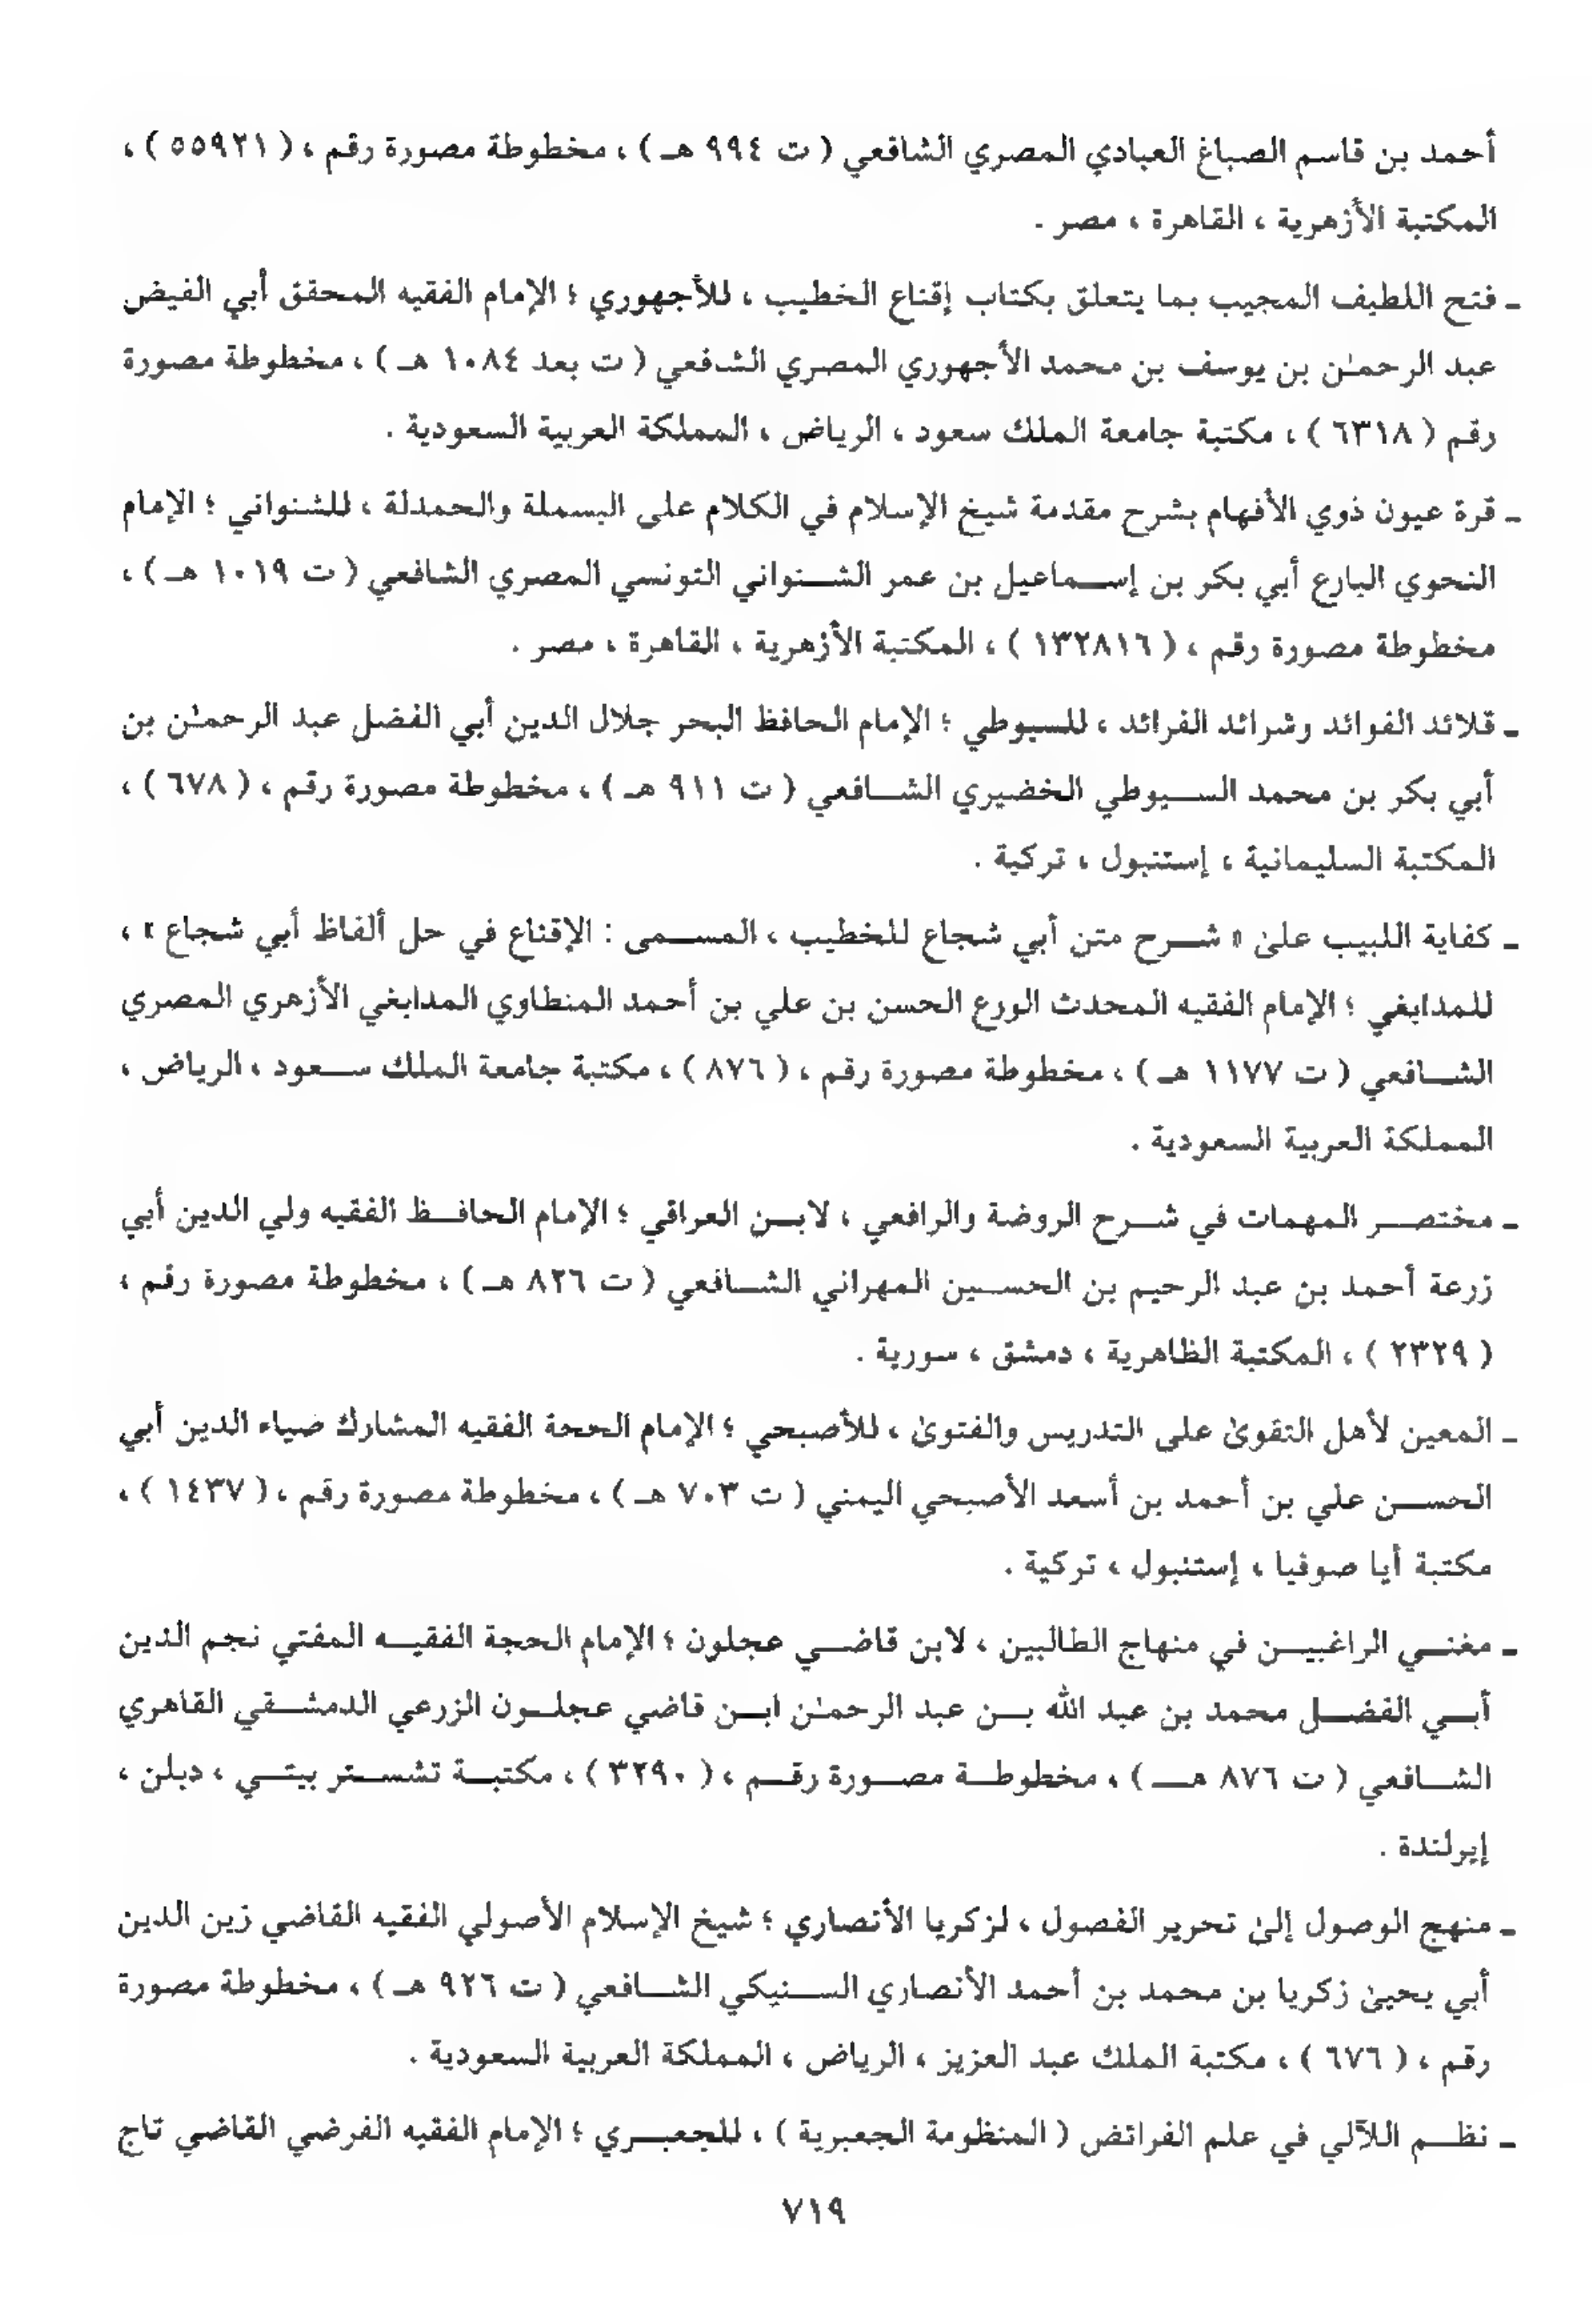 أحمد بن قاسم الصباغ العبادي المصري الشافعي ( ت ٩٩٤ هـ ) ، مخطوطة مصورة رقم ، ( ٥٥٩٢١ ) ،
المكتبة الأزهرية ، القاهرة ، مصر .
ـ فتح اللطيف المجيب بما يتعلق بكتاب إقناع الخطيب ، للأجهوري ؛ الإمام الفقيه المحقق أبي الفيض
عبد الرحمٰن بن يوسف بن محمد الأجهوري المصري الشفعي ( ت بعد ١٠٨٤ هـ ) ، مخطوطة مصورة
رقم ( ٦٣١٨ ) ، مكتبة جامعة الملك سعود ، الرياض ، المملكة العربية السعودية .
ـ قرة عيون ذوي الأفهام بشرح مقدمة شيخ الإسلام في الكلام على البسملة والحمدلة ، للشنواني ؛ الإمام
النحوي البارع أبي بكر بن إسـماعيل بن عمر الشـنواني التونسي المصري الشافعي ( ت ١٠١٩ هـ ) ،
مخطوطة مصورة رقم ، ( ١٣٢٨١٦ ) ، المكتبة الأزهرية ، القاهرة ، مصر .
ـ قلائد الفوائد وشرائد الفرائد ، للسيوطي ؛ الإمام الحافظ البحر جلال الدين أبي الفضل عبد الرحمٰن بن
أبي بكر بن محمد السـيوطي الخضيري الشـافعي ( ت ٩١١ هـ ) ، مخطوطة مصورة رقم ، ( ٦٧٨ ) ،
المكتبة السليمانية ، إستنبول ، تركية .
ـ كفاية اللبيب علىٰ « شـرح متن أبي شجاع للخطيب ، المسـمى : الإقناع في حل ألفاظ أبي شجاع » ،
للمدابغي ؛ الإمام الفقيه المحدث الورع الحسن بن علي بن أحمد المنطاوي المدابغي الأزهري المصري
الشـافعي ( ت ١١٧٧ هـ ) ، مخطوطة مصورة رقم ، ( ٨٧٦ ) ، مكتبة جامعة الملك سـعود ، الرياض ،
المملكة العربية السعودية .
ـ مختصـر المهمات في شـرح الروضة والرافعي ، لابـن العراقي ؛ الإمام الحافـظ الفقيه ولي الدين أبي
زرعة أحمد بن عبد الرحيم بن الحسـين المهراني الشـافعي ( ت ٨٢٦ هـ ) ، مخطوطة مصورة رقم ،
( ٢٣٢٩ ) ، المكتبة الظاهرية ، دمشق ، سورية .
ـ المعين لأهل التقوىٰ على التدريس والفتوىٰ ، للأصبحي ؛ الإمام الحجة الفقيه المشارك ضياء الدين أبي
الحسـن علي بن أحمد بن أسعد الأصبحي اليمني ( ت ٧٠٣ هـ ) ، مخطوطة مصورة رقم ، ( ١٤٣٧ ) ،
مكتبة أيا صوفيا ، إستنبول ، تركية .
ـ مغنـي الراغبيـن في منهاج الطالبين ، لابن قاضـي عجلون ؛ الإمام الحجة الفقيـه المفتي نجم الدين
أبـي الفضـل محمد بن عبد الله بـن عبد الرحمٰن ابـن قاضي عجلـون الزرعي الدمشـقي القاهري
الشـافعي ( ت ٨٧٦ هـ ) ، مخطوطـة مصـورة رقـم ، ( ٣٢٩٠ ) ، مكتبـة تشسـتر بيتـي ، دبلن ،
إيرلندة .
ـ منهج الوصول إلىٰ تحرير الفصول ، لزكريا الأنصاري ؛ شيخ الإسلام الأصولي الفقيه القاضي زين الدين
أبي يحيىٰ زكريا بن محمد بن أحمد الأنصاري السـنيكي الشـافعي ( ت ٩٢٦ هـ ) ، مخطوطة مصورة
رقم ، ( ٦٧٦ ) ، مكتبة الملك عبد العزيز ، الرياض ، المملكة العربية السعودية .
ـ نظـم اللآلي في علم الفرائض ( المنظومة الجعبرية ) ، للجعبـري ؛ الإمام الفقيه الفرضي القاضي تاج
٧١٩